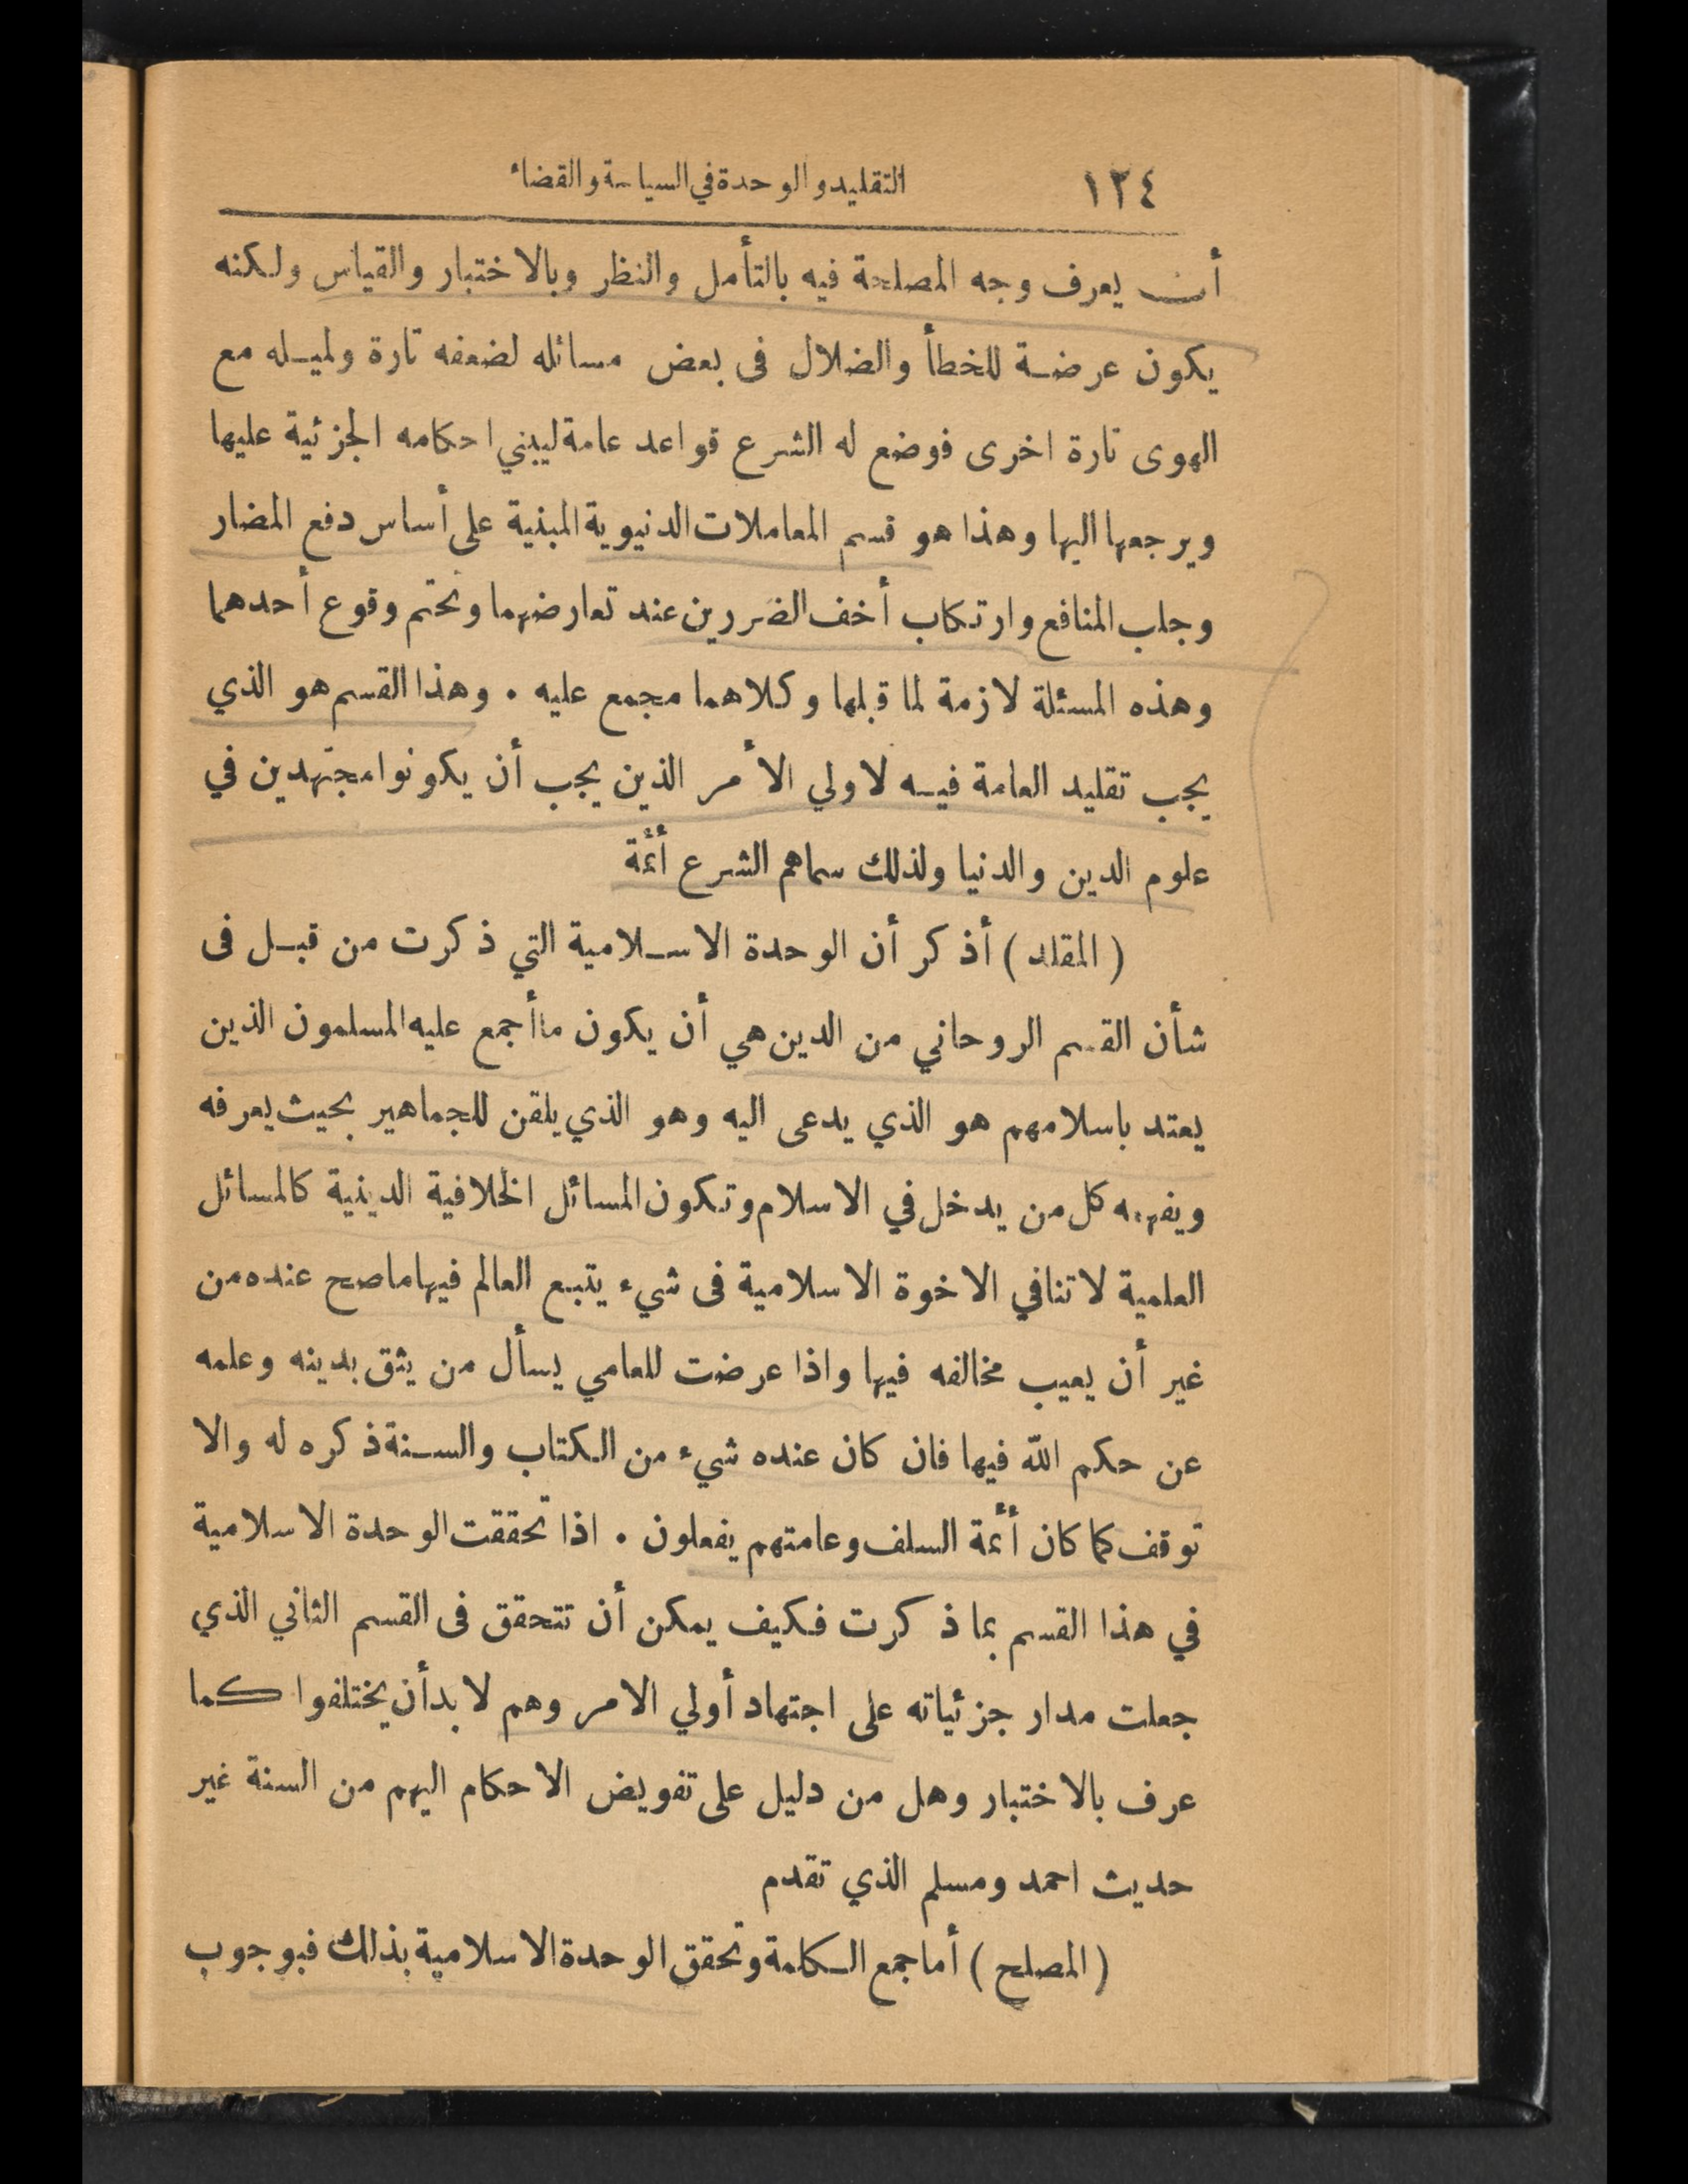 ١٢٤ التقليد والوحدة في السياسة والقضاء
أن يعرف وجه المصلحة فيه بالتأمل والنظر وبالاختبار والقياس ولكنه
يكون عرضة للخطأ والضلال فى بعض مسائله لضعفه تارة ولميله مع
الهوى تارة اخرى فوضع له الشرع قواعد عامة ليبني احكامه الجزئية عليها
ويرجعها اليها وهذا هو قسم المعاملات الدنيوية المبنية على أساس دفع المضار
وجلب المنافع وارتكاب أخف الضررين عند تعارضهما وتحتم وقوع أحدهما
وهذه المسئلة لازمة لما قبلها وكلاهما مجمع عليه . وهذا القسم هو الذي
يجب تقليد العامة فيه لاولي الأمر الذين يجب أن يكونوا مجتهدين في
علوم الدين والدنيا ولذلك سماهم الشرع أئمة
( المقلد ) أذكر أن الوحدة الاسلامية التي ذكرت من قبل فى
شأن القسم الروحاني من الدين هي أن يكون ما أجمع عليه المسلمون الذين
يعتد باسلامهم هو الذي يدعى اليه وهو الذي يلقن للجماهير بحيث يعرفه
ويفهمه كل من يدخل في الاسلام وتكون المسائل الخلافية الدينية كالمسائل
العلمية لا تنافي الاخوة الاسلامية فى شيء يتبع العالم فيها ما صح عنده من
غير أن يعيب مخالفه فيها واذا عرضت للعامي يسأل من يثق بدينه وعلمه
عن حكم الله فيها فان كان عنده شيء من الكتاب والسنة ذكره له والا
توقف كما كان أئمة السلف وعامتهم يفعلون . اذا تحققت الوحدة الاسلامية
في هذا القسم بما ذكرت فكيف يمكن أن تتحقق فى القسم الثاني الذي
جعلت مدار جزئياته على اجتهاد أولي الامر وهم لا بد أن يختلفوا كما
عرف بالاختبار وهل من دليل على تفويض الاحكام اليهم من السنة غير
حديث احمد ومسلم الذي تقدم
( المصلح ) أما جمع الكلمة وتحقق الوحدة الاسلامية بذلك فبوجوب